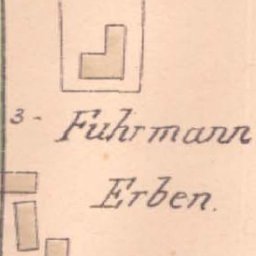 3- Fuhrmann
Erben.